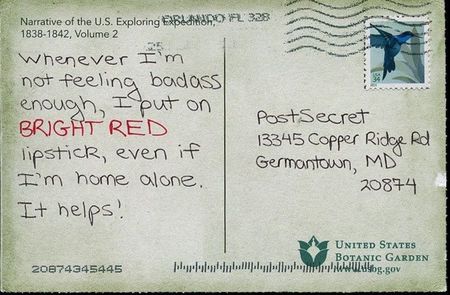 Narrative of the U.S. Exploring Expedition,
1838-1842, Volume 2
ORLANDO FL 328
Whenever I'm
not feeling badass
enough, I put on
BRIGHT RED
lipstick, even if
I'm home alone.
It helps!
PostSecret
13345 Copper Ridge Rd
Germantown, MD
20874
UNITED STATES
BOTANIC GARDEN
20874345445